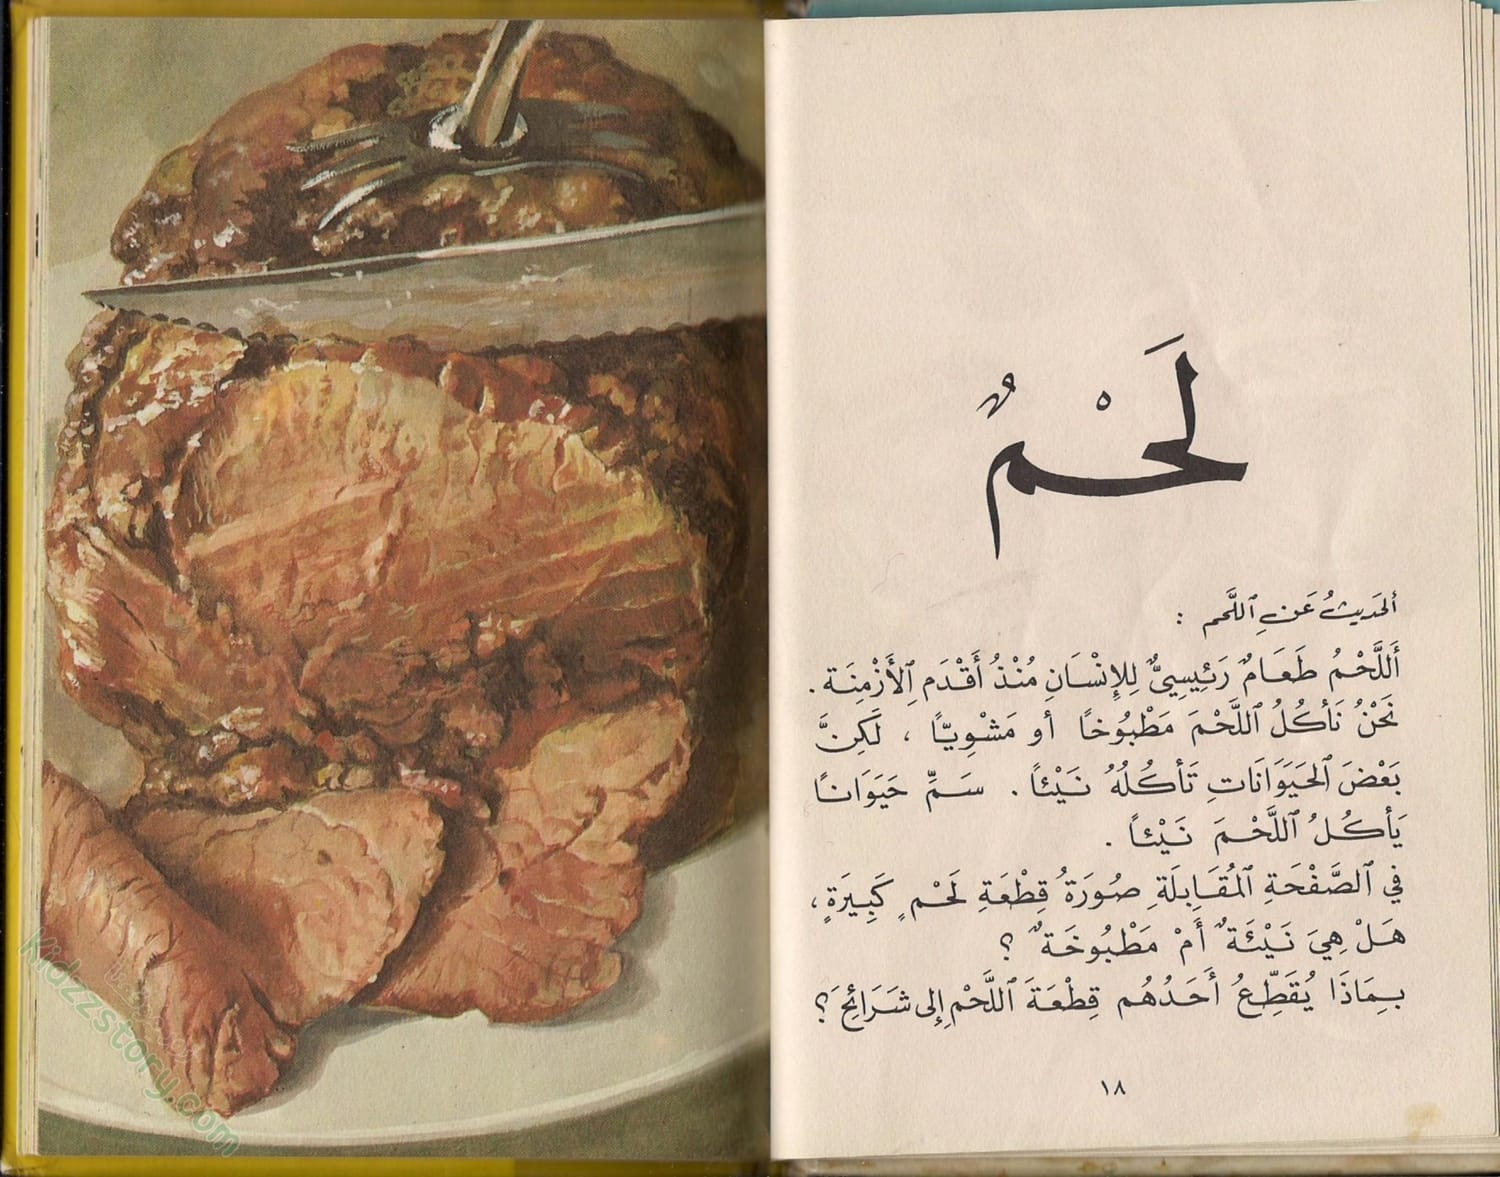 لَحْمٌ
أَلحَديثُ عَنِ ٱللَّحم :
أَللَّحْمُ طَعَامٌ رَئِيسِيٌّ لِلإِنْسَانِ مُنْذُ أَقْدَمِ ٱلأَزْمِنَة .
نَحْنُ نَأكُلُ ٱللَّحْمَ مَطْبُوخًا أو مَشْوِيًّا ، لَكِنَّ
بَعْضَ ٱلحَيَوَانَاتِ تَأكُلُهُ نَيْئاً . سَمِّ حَيَوَانًا
يَأكُلُ ٱللَّحْمَ نَيْئاً .
في ٱلصَّفْحَةِ ٱلمُقَابِلَةِ صُورَةُ قِطْعَةِ لَحْمٍ كَبِيرَةٍ ،
هَلْ هِيَ نَيْئَةٌ أَمْ مَطْبُوخَةٌ ؟
بِمَاذَا يُقَطِّعُ أَحَدُهُم قِطْعَةَ ٱللَّحْمِ إِلى شَرَائِحَ ؟
١٨
kidzzstory.com